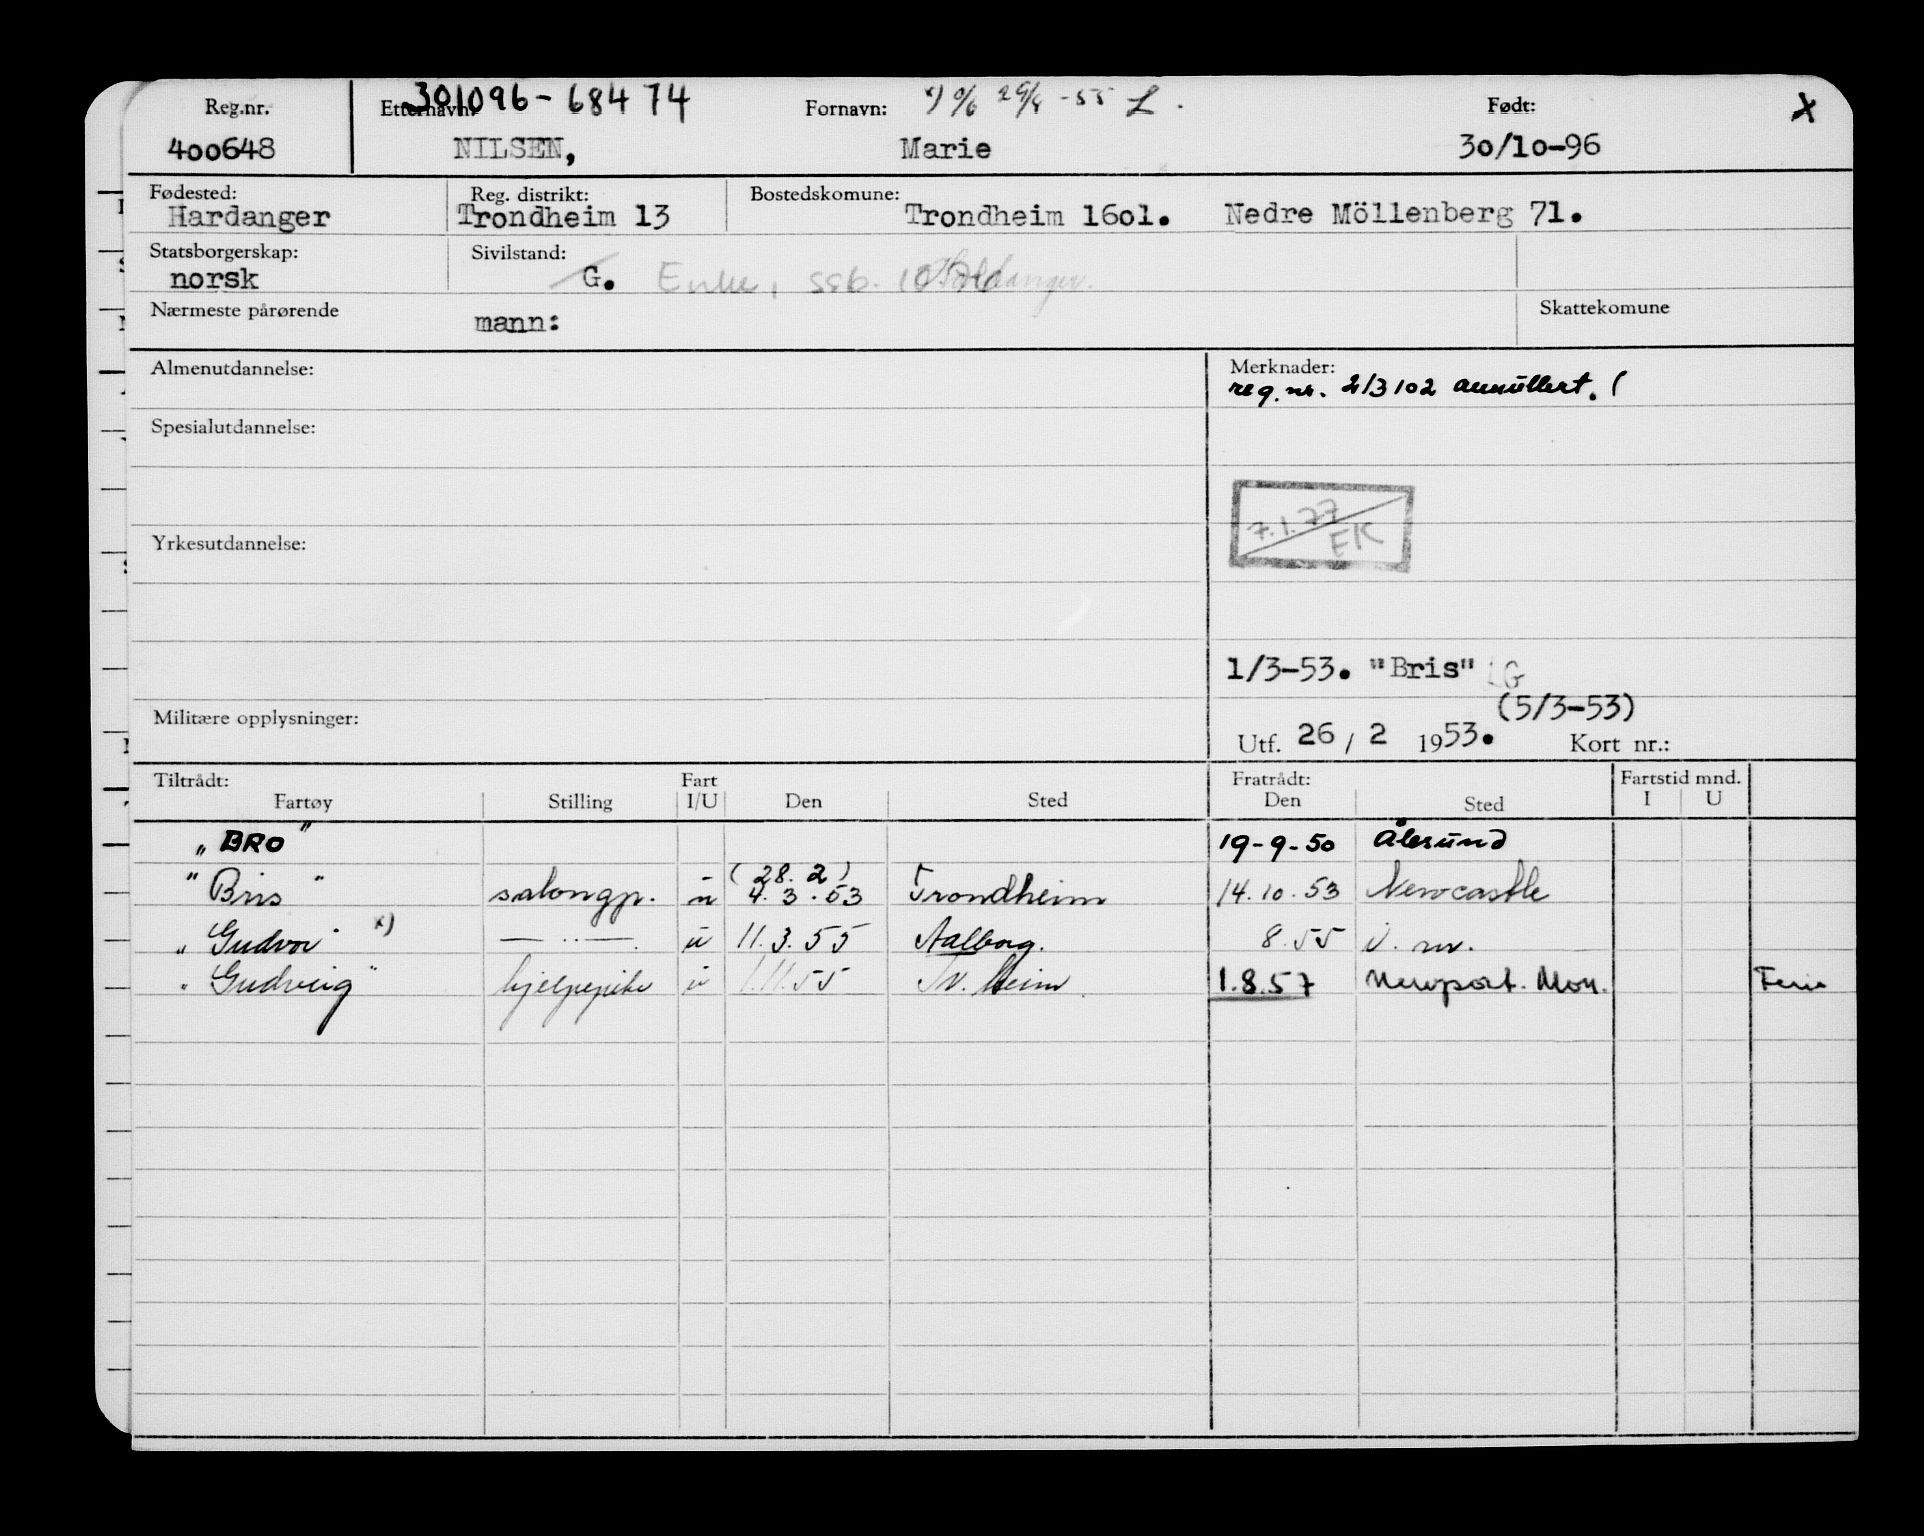 Reg.nr. Etternavn: 301096-68474 Fornavn: x) 29/8 -55 L. Født: x
400648 NILSEN, Marie 30/10-96
Fødested: Reg. distrikt: Bostedskomune:
Hardanger Trondheim 13 Trondheim 1601. Nedre Möllenberg 71.
Statsborgerskap: Sivilstand:
norsk G. Enke, ssb. Hardanger.
Nærmeste pårørende mann: Skattekomune
Almenutdannelse: Merknader:
reg.nr. 213102 annullert. (
Spesialutdannelse:
7.1.77
EK
Yrkesutdannelse:
1/3-53. "Bris" LG
(5/3-53)
Militære opplysninger: Utf. 26 / 2 1953. Kort nr.:
Tiltrådt: Fart Fratrådt: Fartstid mnd.
Fartøy Stilling I/U Den Sted Den Sted I U
"BRO" 19-9-50 Ålesund
(28.2)
"Bris" salongp. u 4.3.53 Trondheim 14.10.53 Newcastle
"Gudvor" x) — " — . u 11.3.55 Aalborg. 8.55
"Gudveig" hjelpepike u 1.11.55 Tr.heim 1.8.57 Newport. Mon. Ferie